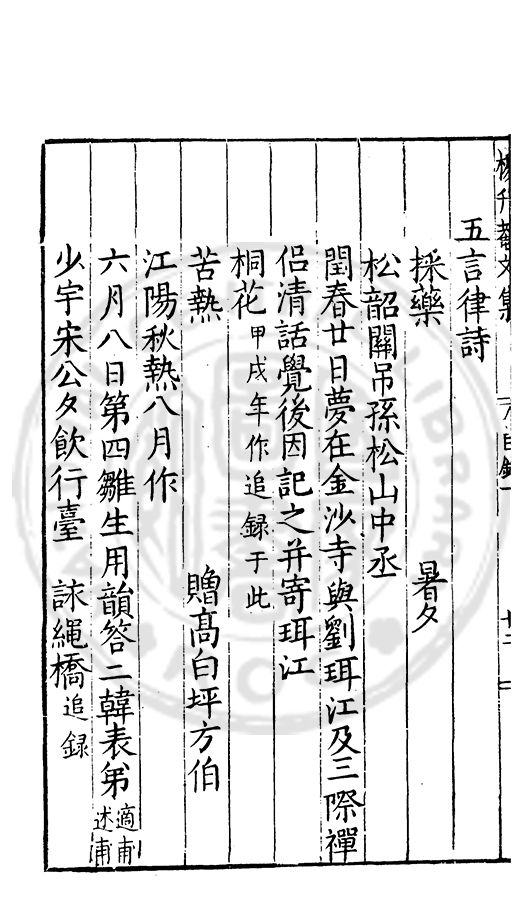 楊升菴文集
目錄一
五言律詩
採藥　暑夕
松韶關吊孫松山中丞
閏春廿日夢在金沙寺與劉珥江及三際禪
侶清話覺後因記之并寄珥江
桐花甲戌年作追録于此
苦熱　贈高白坪方伯
江陽秋熱八月作
六月八日第四雛生用韻答二韓表弟適甫述甫
少宇宋公夕飲行臺　詠繩橋追録